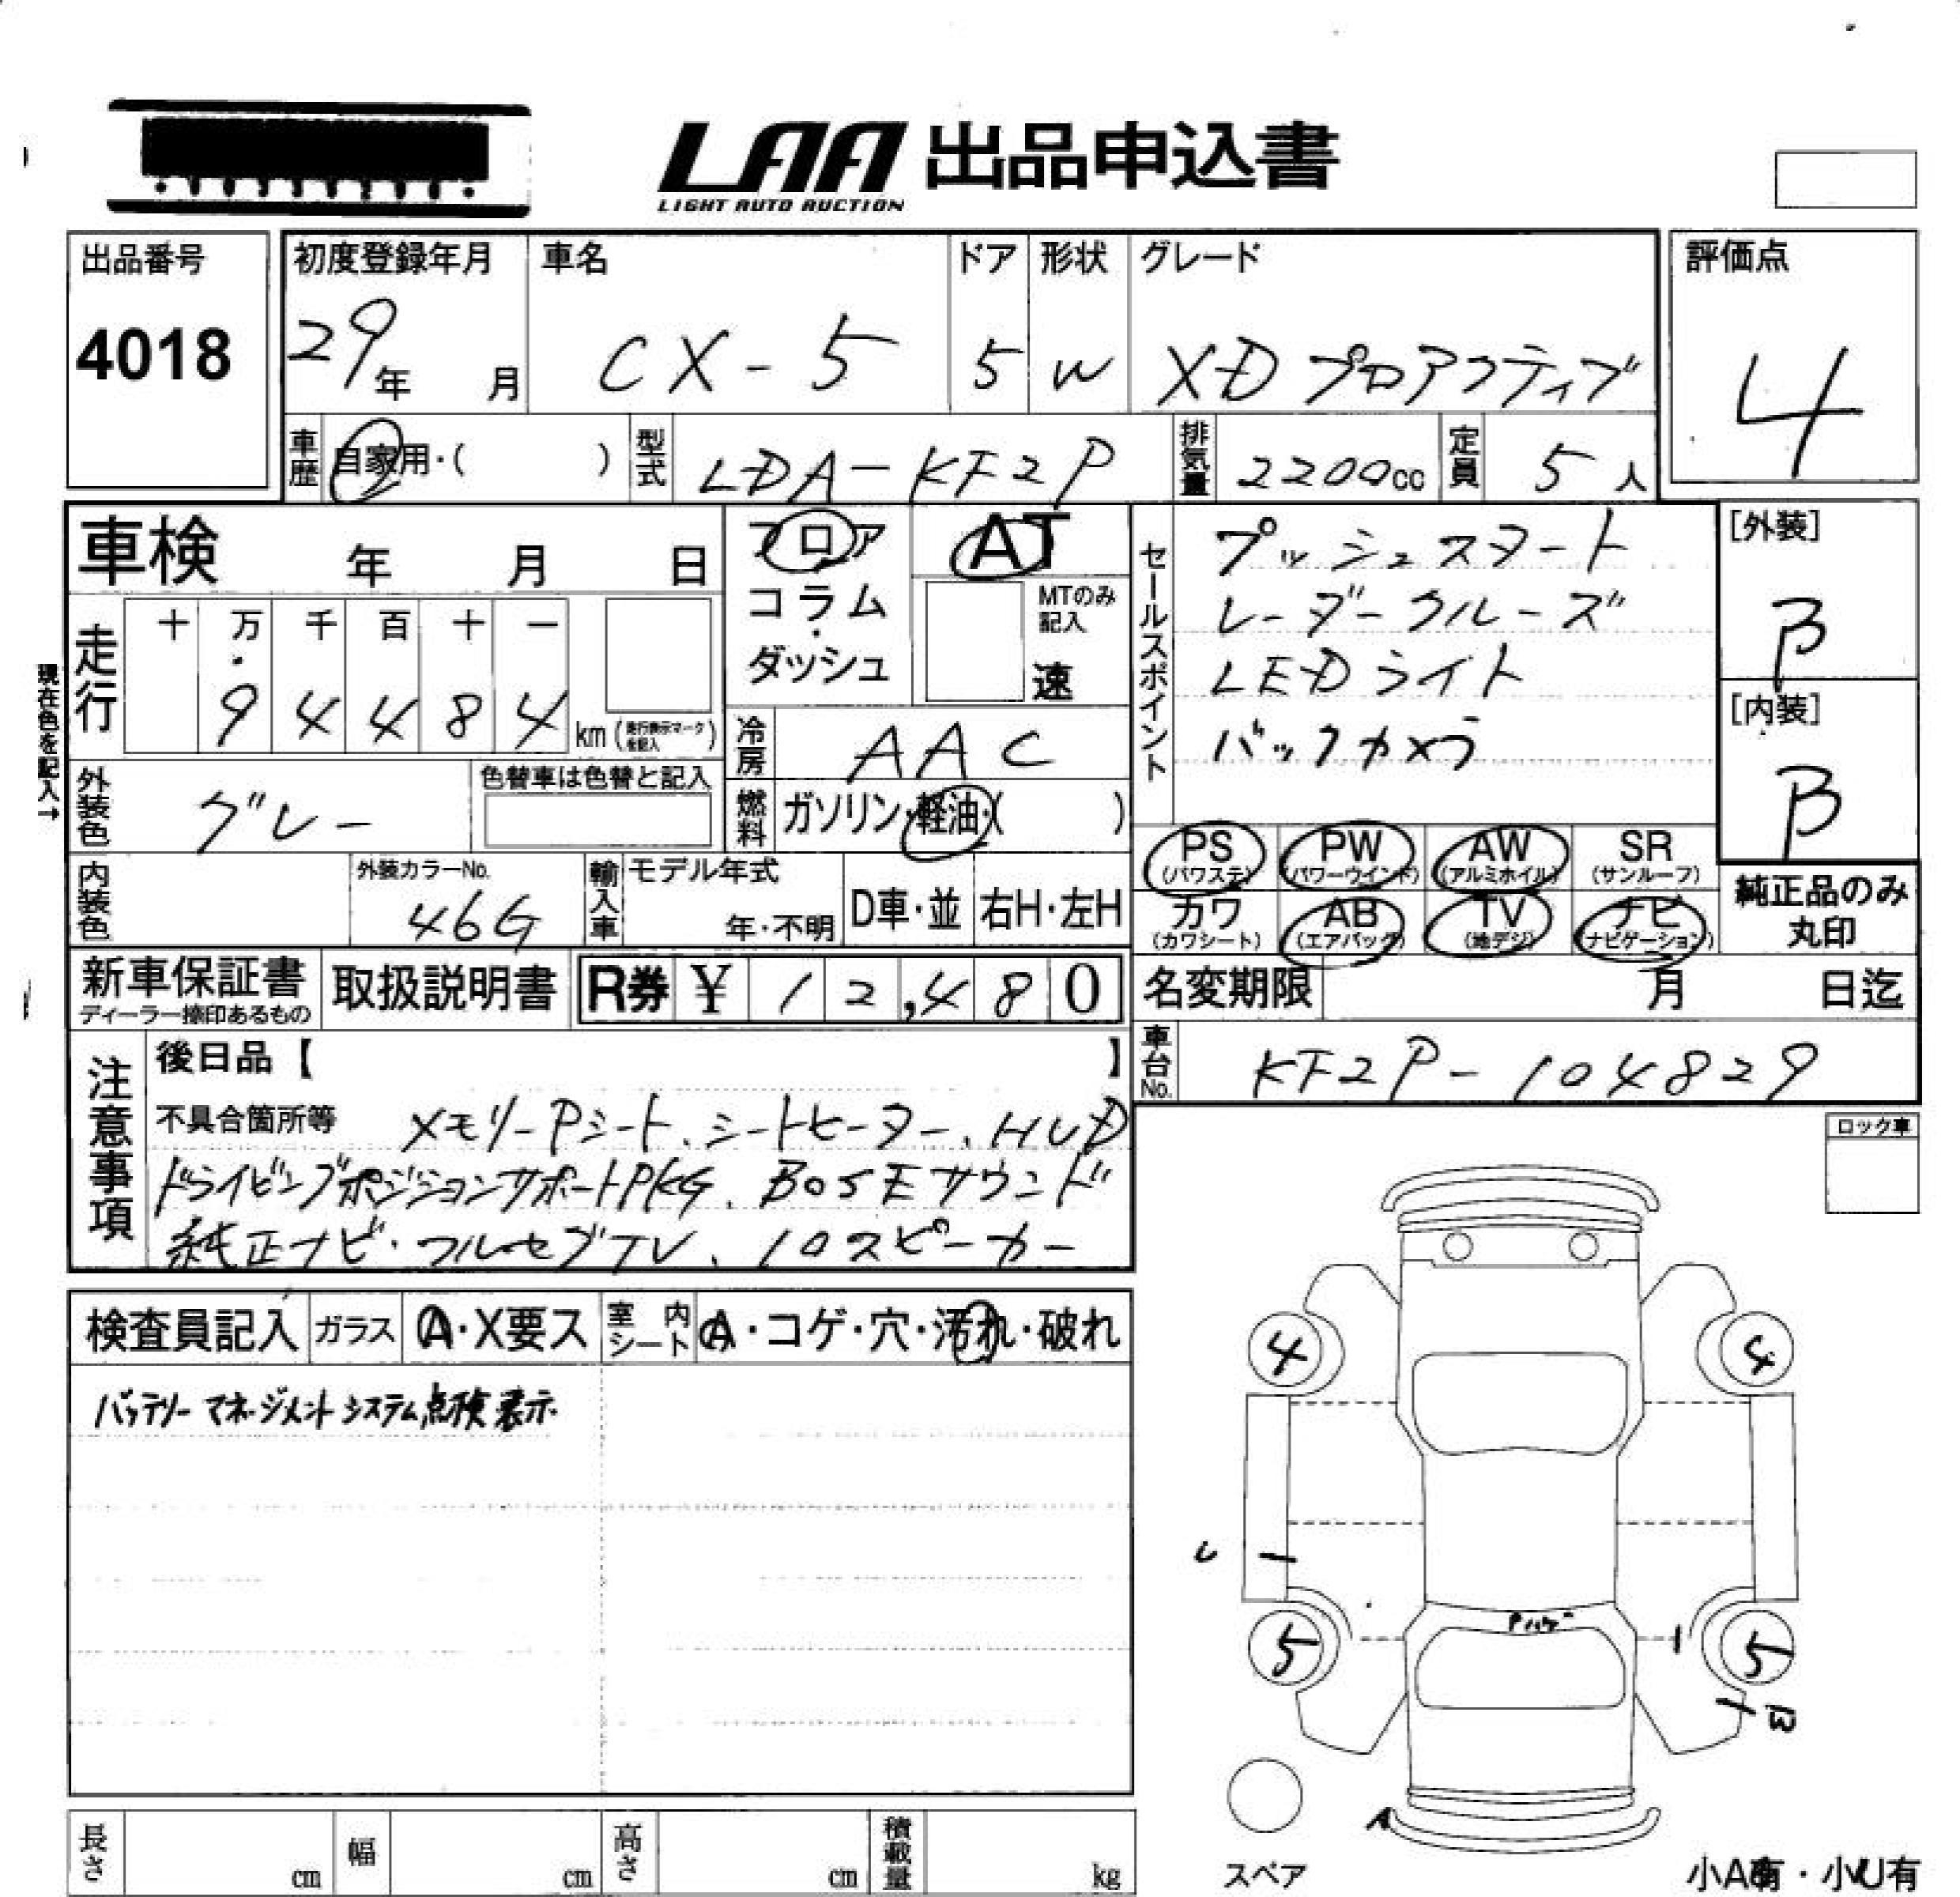 LAA 出品申込書
LIGHT AUTO AUCTION
出品番号
4018
初度登録年月
29年 月
車名
CX-5
ドア
5
形状
W
グレード
XD プロアクティブ
評価点
4
車歴 自家用・( )
型式 LDA-KF2P
排気量 2200cc
定員 5人
車検 年 月 日
フロア
コラム
・
ダッシュ
AT
MTのみ
記入
速
セールスポイント
プッシュスタート
レーダークルーズ
LEDライト
バックカメラ
[外装]
B
[内装]
B
現在色を記入→
走行
十 万 千 百 十 一
9 4 4 8 4 km (走行表示マークを記入)
冷房 AAC
外装色 グレー
色替車は色替と記入
燃料 ガソリン・軽油・( )
内装色
外装カラーNo.
46G
輸入車
モデル年式
年・不明
D車・並
右H・左H
PS (パワステ)
PW (パワーウインド)
AW (アルミホイル)
SR (サンルーフ)
カワ (カワシート)
AB (エアバック)
TV (地デジ)
ナビ (ナビゲーション)
純正品のみ
丸印
新車保証書
ディーラー捺印あるもの
取扱説明書
R券 ¥ 12,480
名変期限 月 日迄
車台No. KF2P-104829
注意事項
後日品【 】
不具合箇所等 メモリーPシート、シートヒーター、HUD
ドライビングポジションサポートPKG、BOSEサウンド
純正ナビ・フルセグTV、10スピーカー
ロック車
検査員記入
ガラス A・X要ス
室内シート A・コゲ・穴・汚れ・破れ
バッテリーマネージメントシステム点検表示
4
4
5
5
B
A
スペア
長さ cm
幅 cm
高さ cm
積載量 kg
小A有・小U有